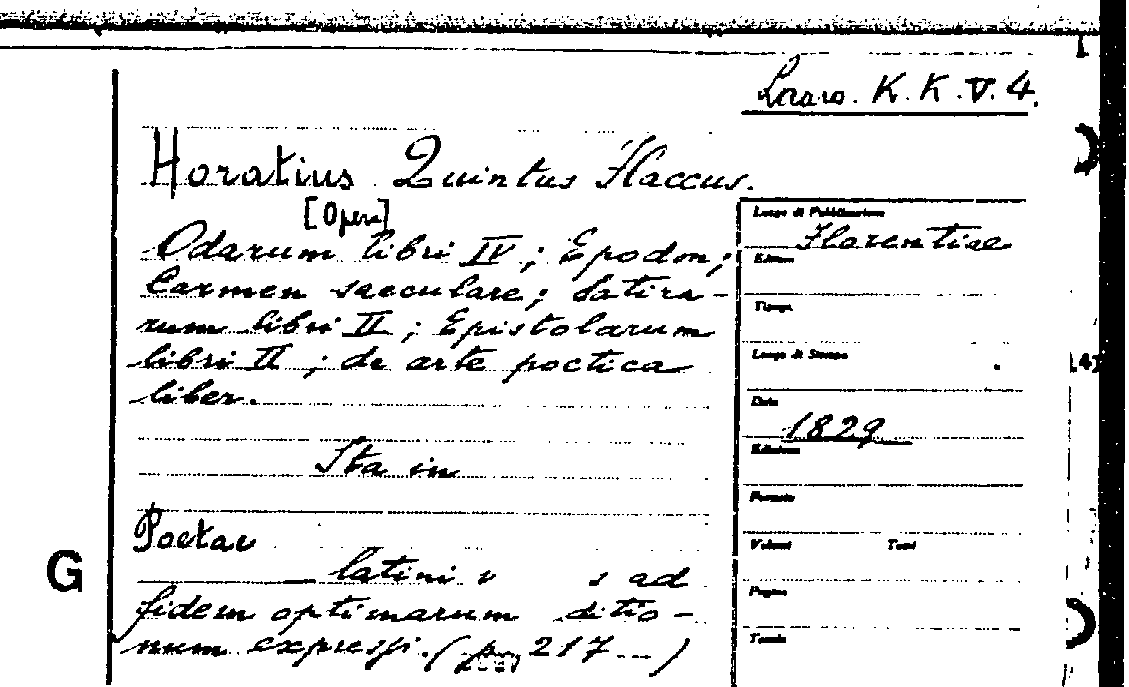 K. K. V. 4.
Horatius Quintus Flaccus.
[Opera]
Odarum libri IV; Epodon;
Carmen saeculare; Satira-
rum libri II; Epistolarum
libri II; de arte poetica
liber.
Sta in
Poetae
latini v s ad
fidem optimarum ditio-
num expressi. (pag 217...)
Luogo di Pubblicazione
Florentiae
Editore
Tipogr.
Luogo di Stampa
Data
1829
Edizione
Formato
Volumi Tomi
Pagine
Tavole
G